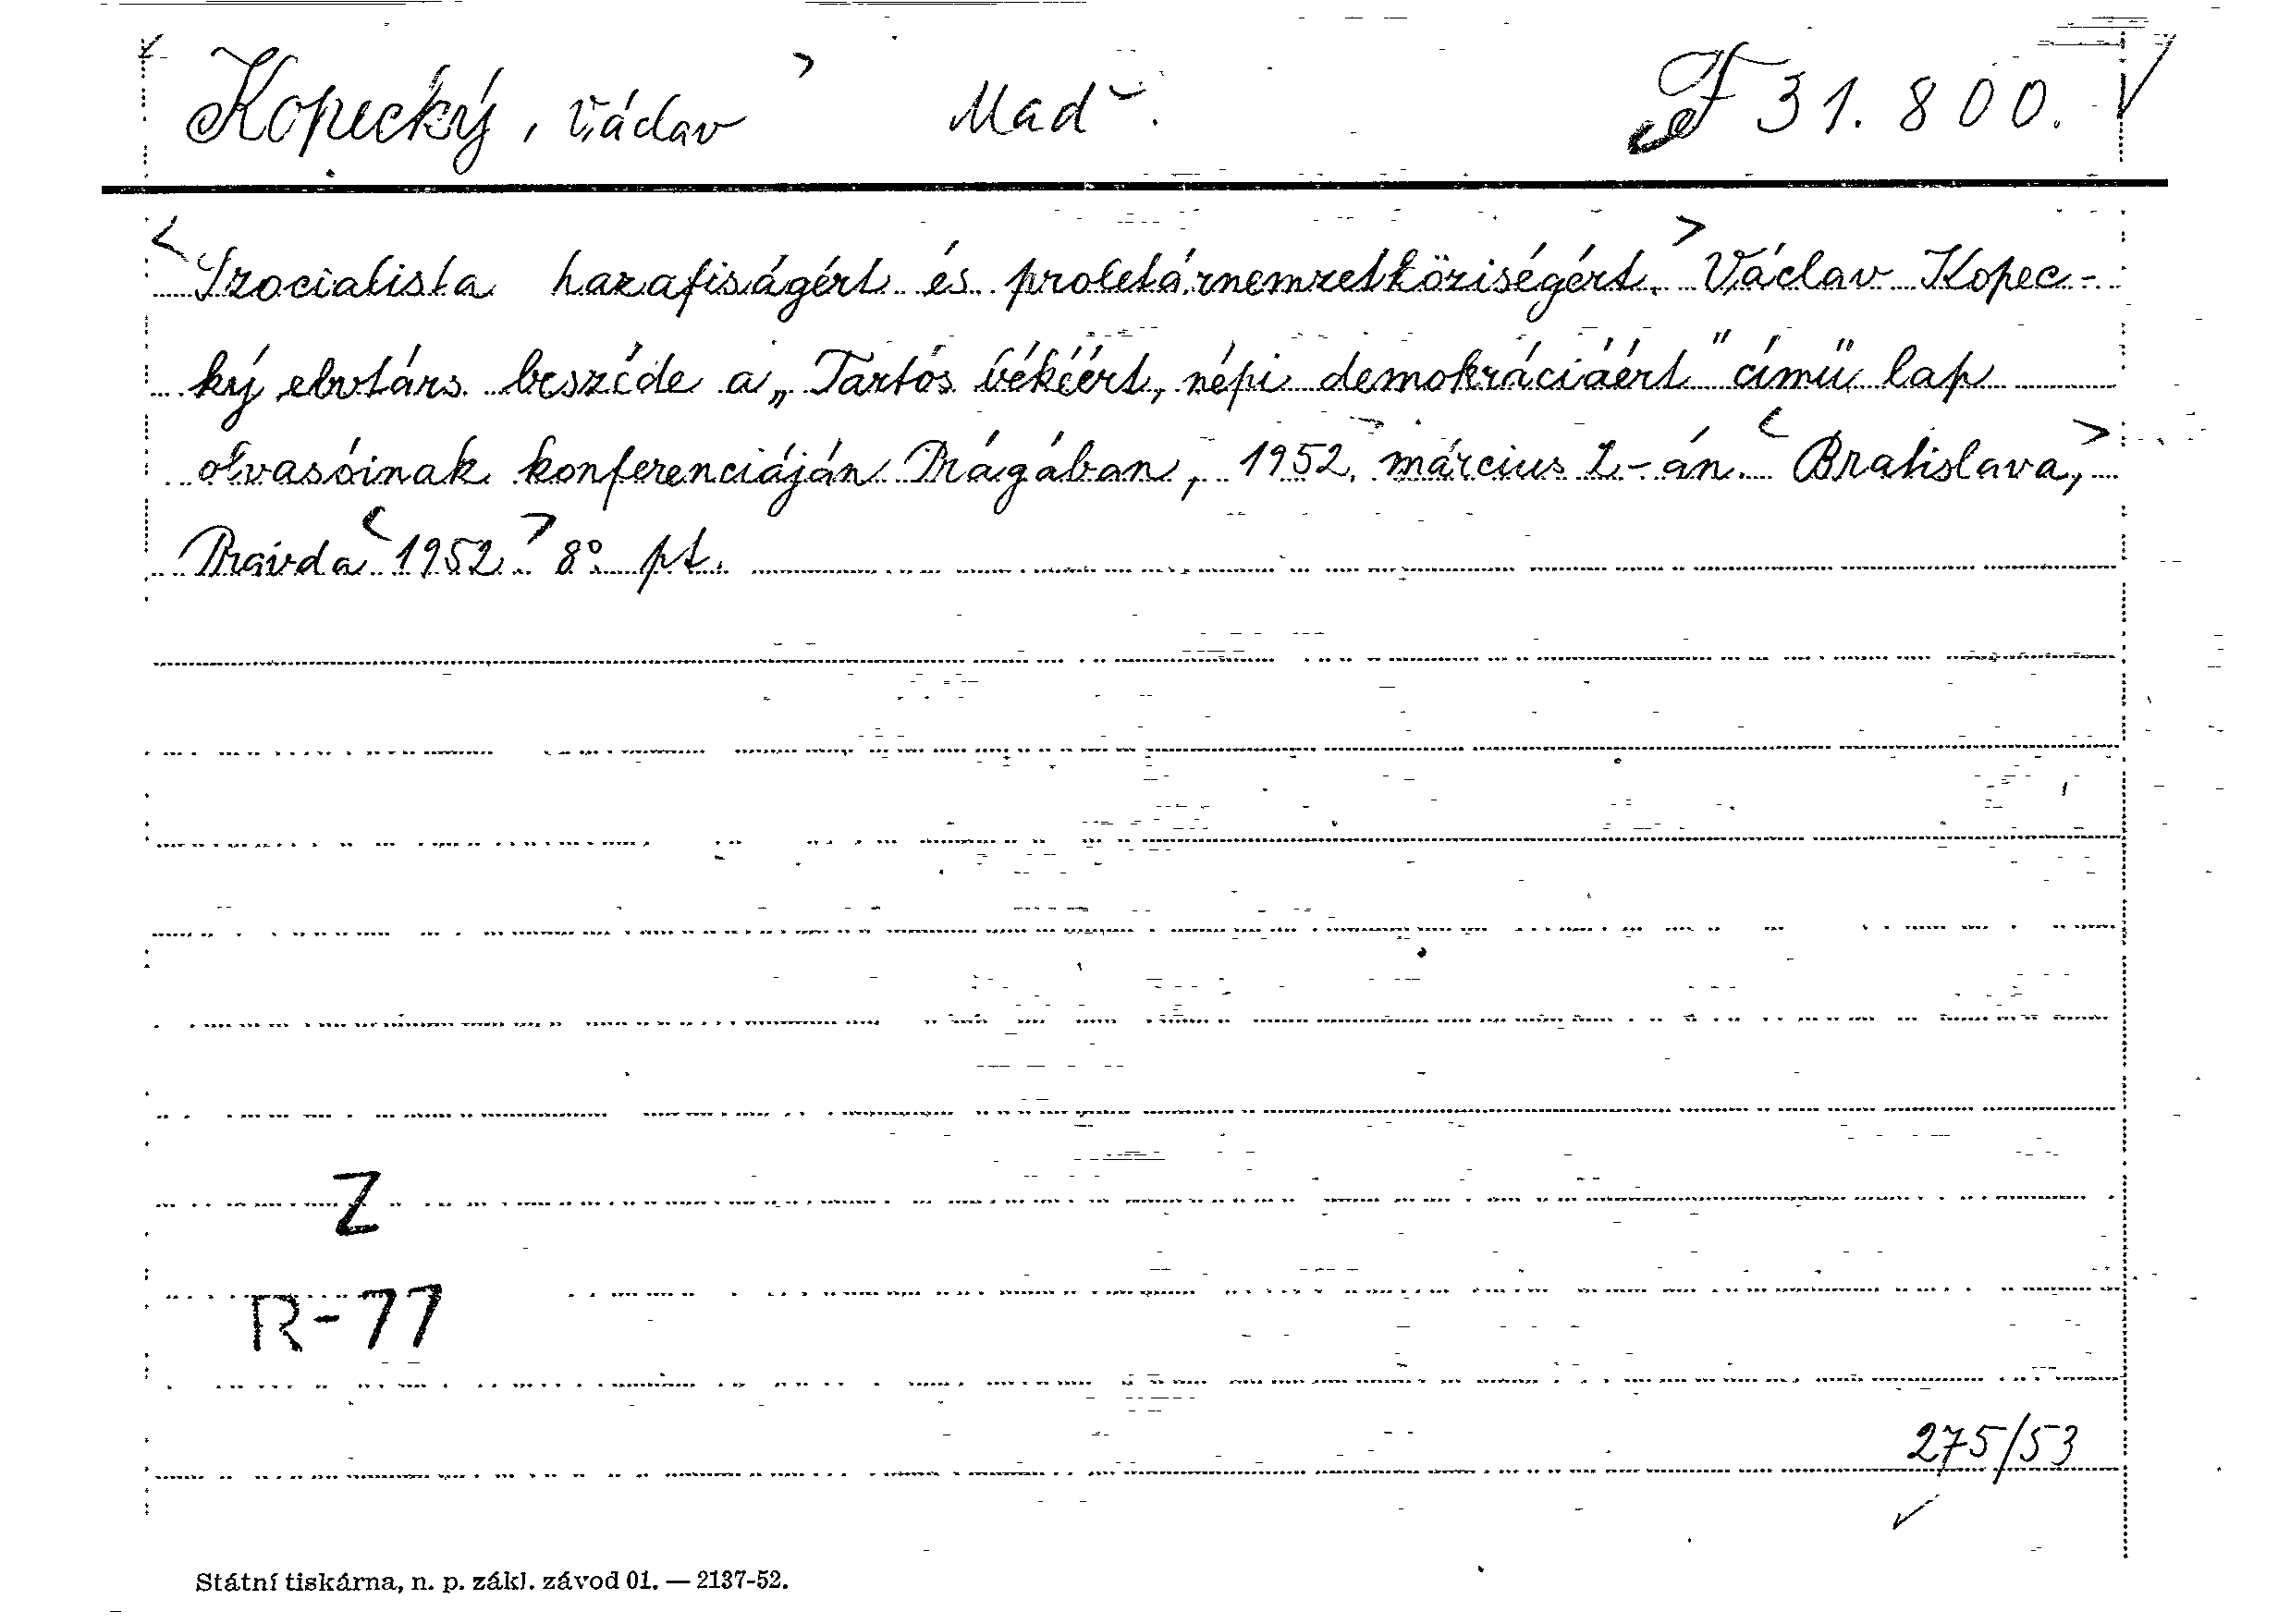 Kopecký, Václav Maď. F 31.800.
Szocialista hazafiságért és proletárnemzetköziségért. Václav Kopec-
ký elvtárs beszéde a „Tartós békéért, népi demokráciáért" című lap
olvasóinak konferenciáján Prágában, 1952. március 2-án. Bratislava,
Pravda 1952. 8° pt.
Z
R-77
275/53
Státní tiskárna, n. p. zákl. závod 01. — 2137-52.